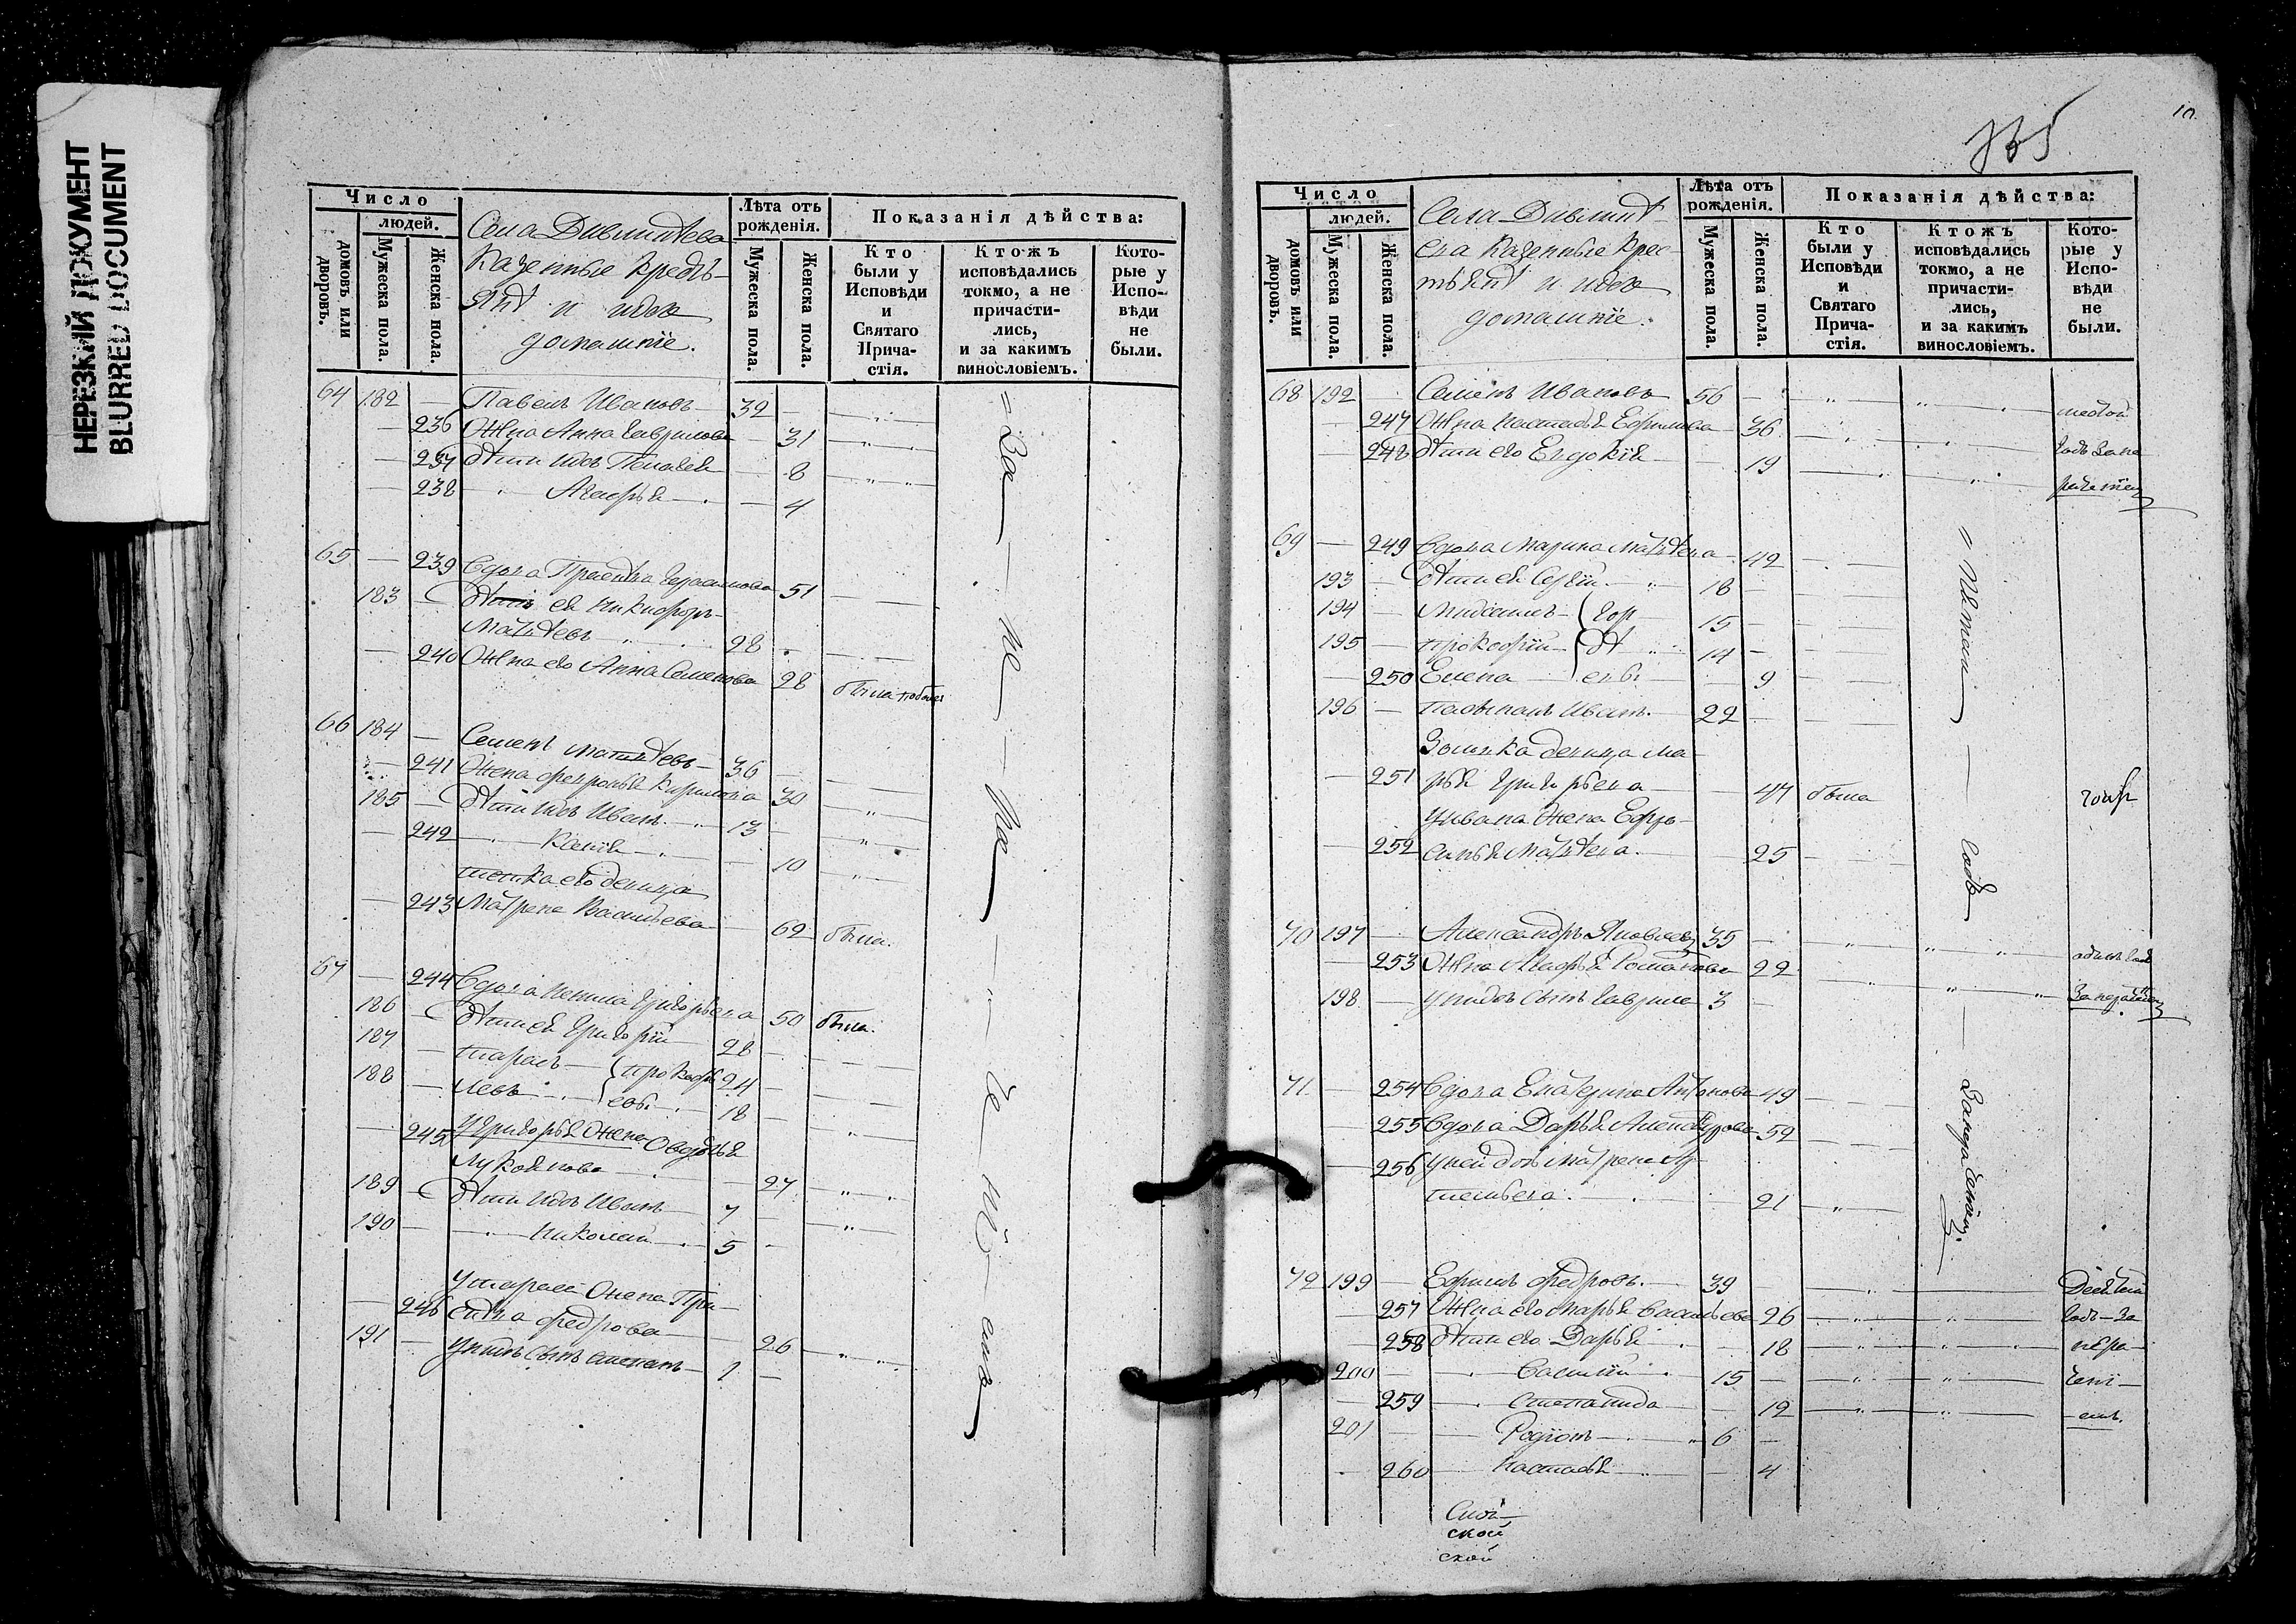 НЕРЕЗКИЙ ДОКУМЕНТ
BLURRED DOCUMENT
Число
людей.
домовъ или дворовъ.
Мужеска пола.
Женска пола.
Села
Казенные
и ихъ
домашніе.
Лѣта отъ рожденія.
Мужеска пола.
Женска пола.
Показанія дѣйства:
Кто были у Исповѣди и Святаго Прича-стія.
Ктожъ исповѣдались токмо, а не причасти-лись, и за какимъ винословіемъ.
Кото-рые у Испо-вѣди не были.
64 182 — Павелъ Ивановъ 32 —
— 236 Жена Анна Гаврилова — 31
— 237 Дѣти ихъ Пелагея — 8
— 238 Агафья — 4
65 — 239 Вдова Герасимова 51
183 — Дѣти ея Никифоръ
Матвѣевъ 28
— 240 Жена его Анна Семенова 28 была
66 184 — Семенъ Матвѣевъ 36
— 241 Жена Февронья Кирилова 30
185 — Дѣти ихъ Иванъ 13
— 242 Ксенія 10
тетка его девица
— 243 Матрена Васильева 62 была.
67 — 244 Вдова Ненила Григорьева 50 была.
186 — Дѣти ея Григорій 28
187 — Тарасъ 24
188 — Левъ 18
Прокофь
евы
— 245 У Григорья жена Овдотья
Лукоянова 27
189 — Дѣти ихъ Иванъ 7
190 — Николай 5
У Тараса жена Пра-
— 246 Федрова 26
191 — У нихъ сынъ Степанъ 1 —
За — не — ра — че — ній — емъ
10.
735
Число
людей.
домовъ или дворовъ.
Мужеска пола.
Женска пола.
Села
Казенные Крес-
и ихъ
домашніе.
Лѣта отъ рожденія.
Мужеска пола.
Женска пола.
Показанія дѣйства:
Кто были у Исповѣди и Святаго Прича-стія.
Ктожъ исповѣдались токмо, а не причасти-лись, и за какимъ винословіемъ.
Кото-рые у Испо-вѣди не были.
68 192 Семенъ Ивановъ 56 — шестой
— 247 Жена Настасья Ефимова 36 годъ за не
— 248 Дѣти его Евдокія 19
69 — 249 Вдова Марина Матвѣева 42
193 — Дѣти ея Сергѣй 18
194 — Михаилъ 15
195 — Прокофій 14
— 250 Елена 9
Фор
дѣ
евы
196 — Иванъ 22
Золовка девица Ма-
— 251 рья Григорьева 47 была
У Ивана жена Ефро-
— 252 синья Матвѣева 25
Пятой — годъ — за нераченіемъ.
70 197 — Александръ Яковлевъ 35 одинъ годъ
— 253 Жена Агафья Романова 22
198 — У нихъ сынъ Гаврила 3 —
71 — 254 Вдова Екатерина Антонова 49
— 255 Вдова Дарья Александрова 52
— 256 У ней дочь Матрена Ар-
темьева 21
72 199 — Ефимъ Федровъ 39 Десятой
— 257 Жена его Марья Васильева 26 годъ — за
— 258 Дѣти его Дарья 18 нѣра
200 — Василій 15 — чені —
— 259 Степанида 12 — емъ.
201 — Родіонъ 6 —
— 260 Настасья 4
ской
ской